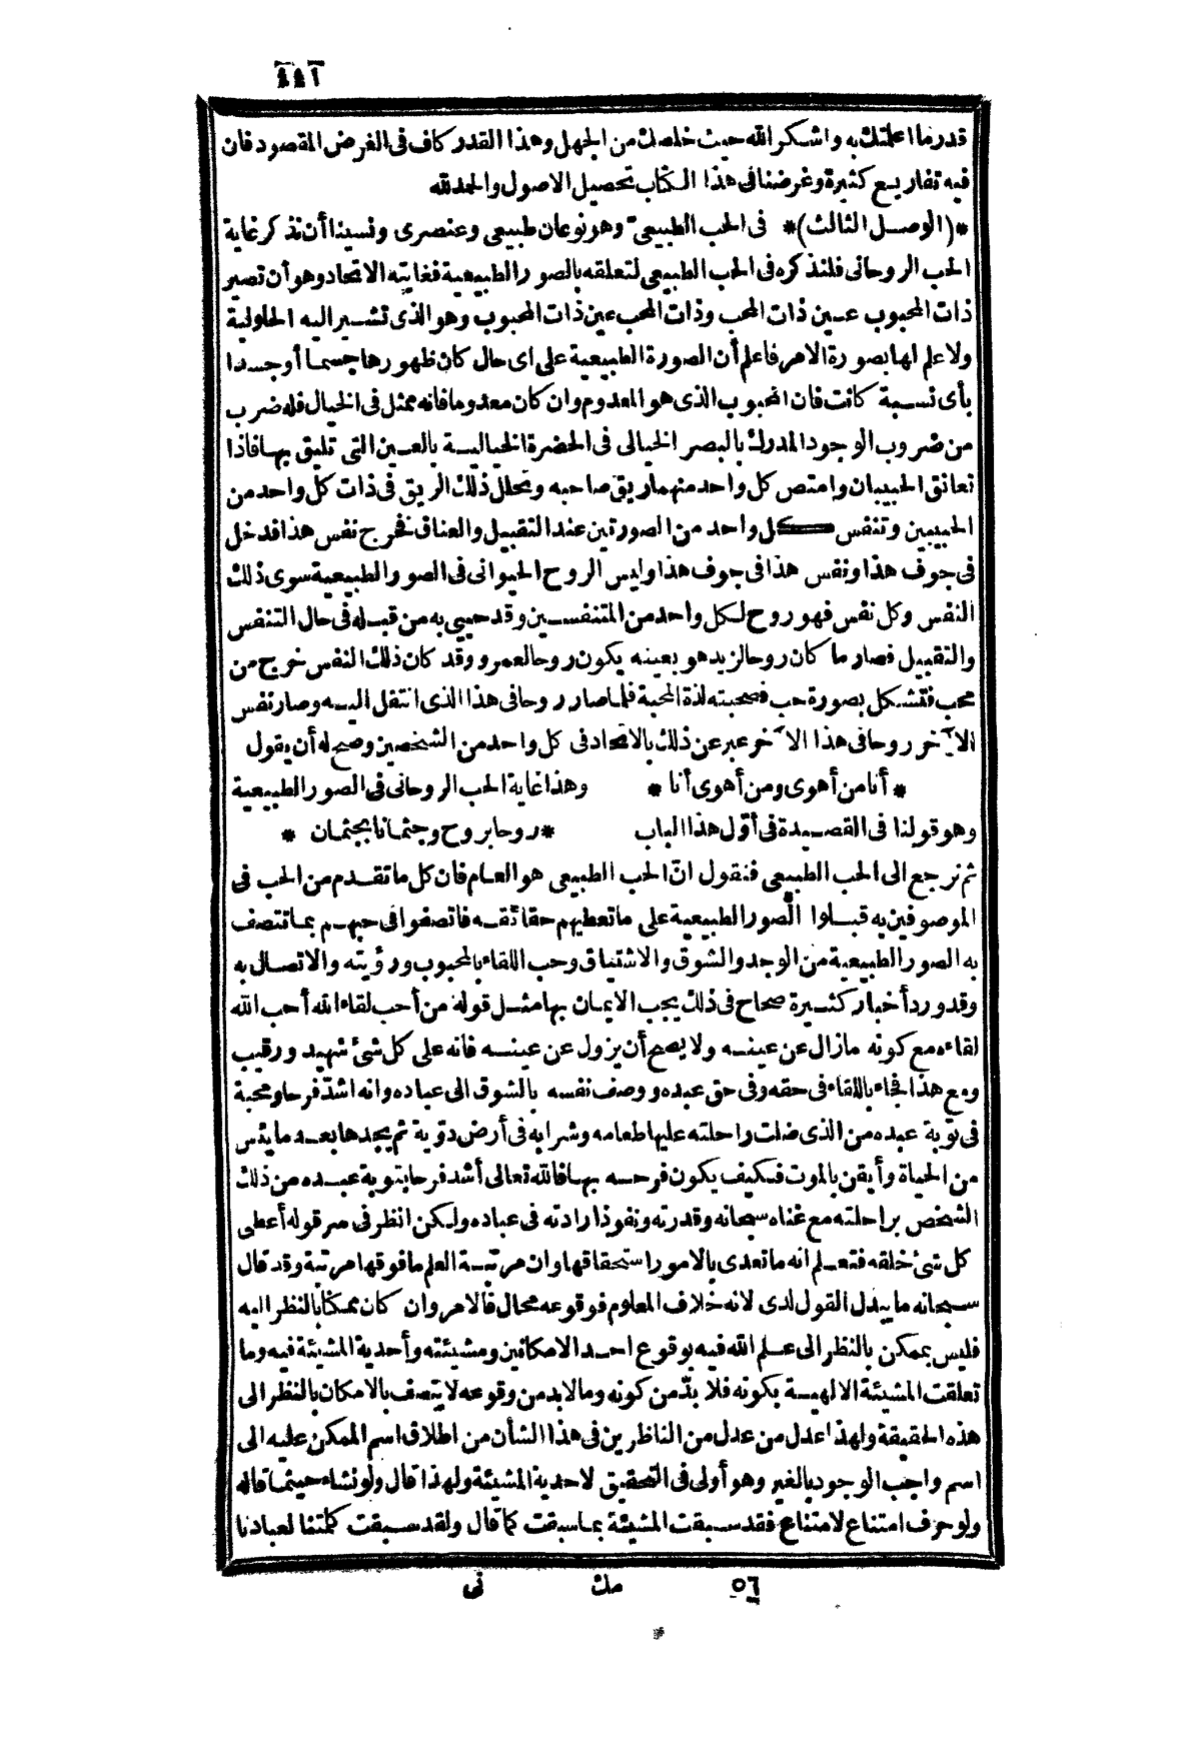 قدر ما اعلمتك به واشكر الله حيث خلصك من الجهل وهذا القدر كاف فى الغرض المقصود فان
فيه تفاريع كثيرة وغرضنا فى هذا الكتاب تحصيل الاصول والحمد لله
*(الوصل الثالث)* فى الحب الطبيعى وهو نوعان طبيعى وعنصرى ونسينا أن نذكر غاية
الحب الروحانى فلنذكره فى الحب الطبيعى لتعلقه بالصور الطبيعية فغايته الاتحاد وهو أن تصير
ذات المحبوب عين ذات المحب وذات المحب عين ذات المحبوب وهو الذى تشير اليه الحلولية
ولا علم لها بصورة الامر فاعلم أن الصورة الطبيعية على اى حال كان ظهورها جسما أو جسدا
بأى نسبة كانت فان المحبوب الذى هو المعدوم وان كان معدوما فانه ممثل فى الخيال فله ضرب
من ضروب الوجود المدرك بالبصر الخيالى فى الحضرة الخيالية بالعين التى تليق بها فاذا
تعانق الحبيبان وامتص كل واحد منهما ريق صاحبه وتحلل ذلك الريق فى ذات كل واحد من
الحبيبين وتنفس كل واحد من الصورتين عند التقبيل والعناق فخرج نفس هذا فدخل
فى جوف هذا ونفس هذا فى جوف هذا وليس الروح الحيوانى فى الصور الطبيعية سوى ذلك
النفس وكل نفس فهو روح لكل واحد من المتنفسين وقد حيى به من قبله فى حال التنفس
والتقبيل فصار ما كان روحا لزيد هو بعينه يكون روحا لعمرو وقد كان ذلك النفس خرج من
محب فتشكل بصورة حب فصحبته لذة المحبة فلما صار روحا فى هذا الذى انتقل اليه وصار نفس
الآخر روحا فى هذا الآخر عبر عن ذلك بالاتحاد فى كل واحد من الشخصين وصح له أن يقول
* أنا من أهوى ومن أهوى أنا * وهذا غاية الحب الروحانى فى الصور الطبيعية
وهو قولنا فى القصيدة فى أول هذا الباب * روحا بروح وجثمانا بجثمان *
ثم نرجع الى الحب الطبيعى فنقول انّ الحب الطبيعى هو العام فان كل ما تقدم من الحب فى
الموصوفين به قبلوا الصور الطبيعية على ما تعطيهم حقائقه فاتصفوا فى حبهم بما تتصف
به الصور الطبيعية من الوجد والشوق والاشتياق وحب اللقاء بالمحبوب ورؤيته والاتصال به
وقد ورد أخبار كثيرة صحاح فى ذلك يجب الايمان بها مثل قوله من أحب لقاء الله أحب الله
لقاءه مع كونه مازال عن عينه ولا يصح أن يزول عن عينه فانه على كل شئ شهيد ورقيب
ومع هذا فجاء باللقاء فى حقه وفى حق عبده ووصف نفسه بالشوق الى عباده وانه اشدّ فرحا ومحبة
فى توبة عبده من الذى ضلت راحلته عليها طعامه وشرابه فى أرض دوّية ثم يجدها بعد ما يئس
من الحياة وأيقن بالموت فكيف يكون فرحه بها فالله تعالى أشد فرحا بتوبة عبده من ذلك
الشخص براحلته مع غناه سبحانه وقدرته ونفوذ ارادته فى عباده ولكن انظر فى سر قوله أعطى
كل شئ خلقه فتعلم انه ما تعدى بالامور استحقاقها وان مرتبة العلم ما فوقها مرتبة وقد قال
سبحانه ما يبدل القول لدى لانه خلاف المعلوم فوقوعه محال فالامر وان كان ممكنا بالنظر اليه
فليس بممكن بالنظر الى علم الله فيه بوقوع احد الامكانين ومشيئته وأحدية المشيئة فيه وما
تعلقت المشيئة الالهية بكونه فلا بدّ من كونه وما لابد من وقوعه لا يتصف بالامكان بالنظر الى
هذه الحقيقة ولهذا عدل من عدل من الناظرين فى هذا الشأن من اطلاق اسم الممكن عليه الى
اسم واجب الوجود بالغير وهو أولى فى التحقيق لاحدية المشيئة ولهذا قال ولو نشاء حيثما قاله
ولو حرف امتناع لامتناع فقد سبقت المشيئة بما سبقت كما قال ولقد سبقت كلمتنا لعبادنا
٥٦ مك نى